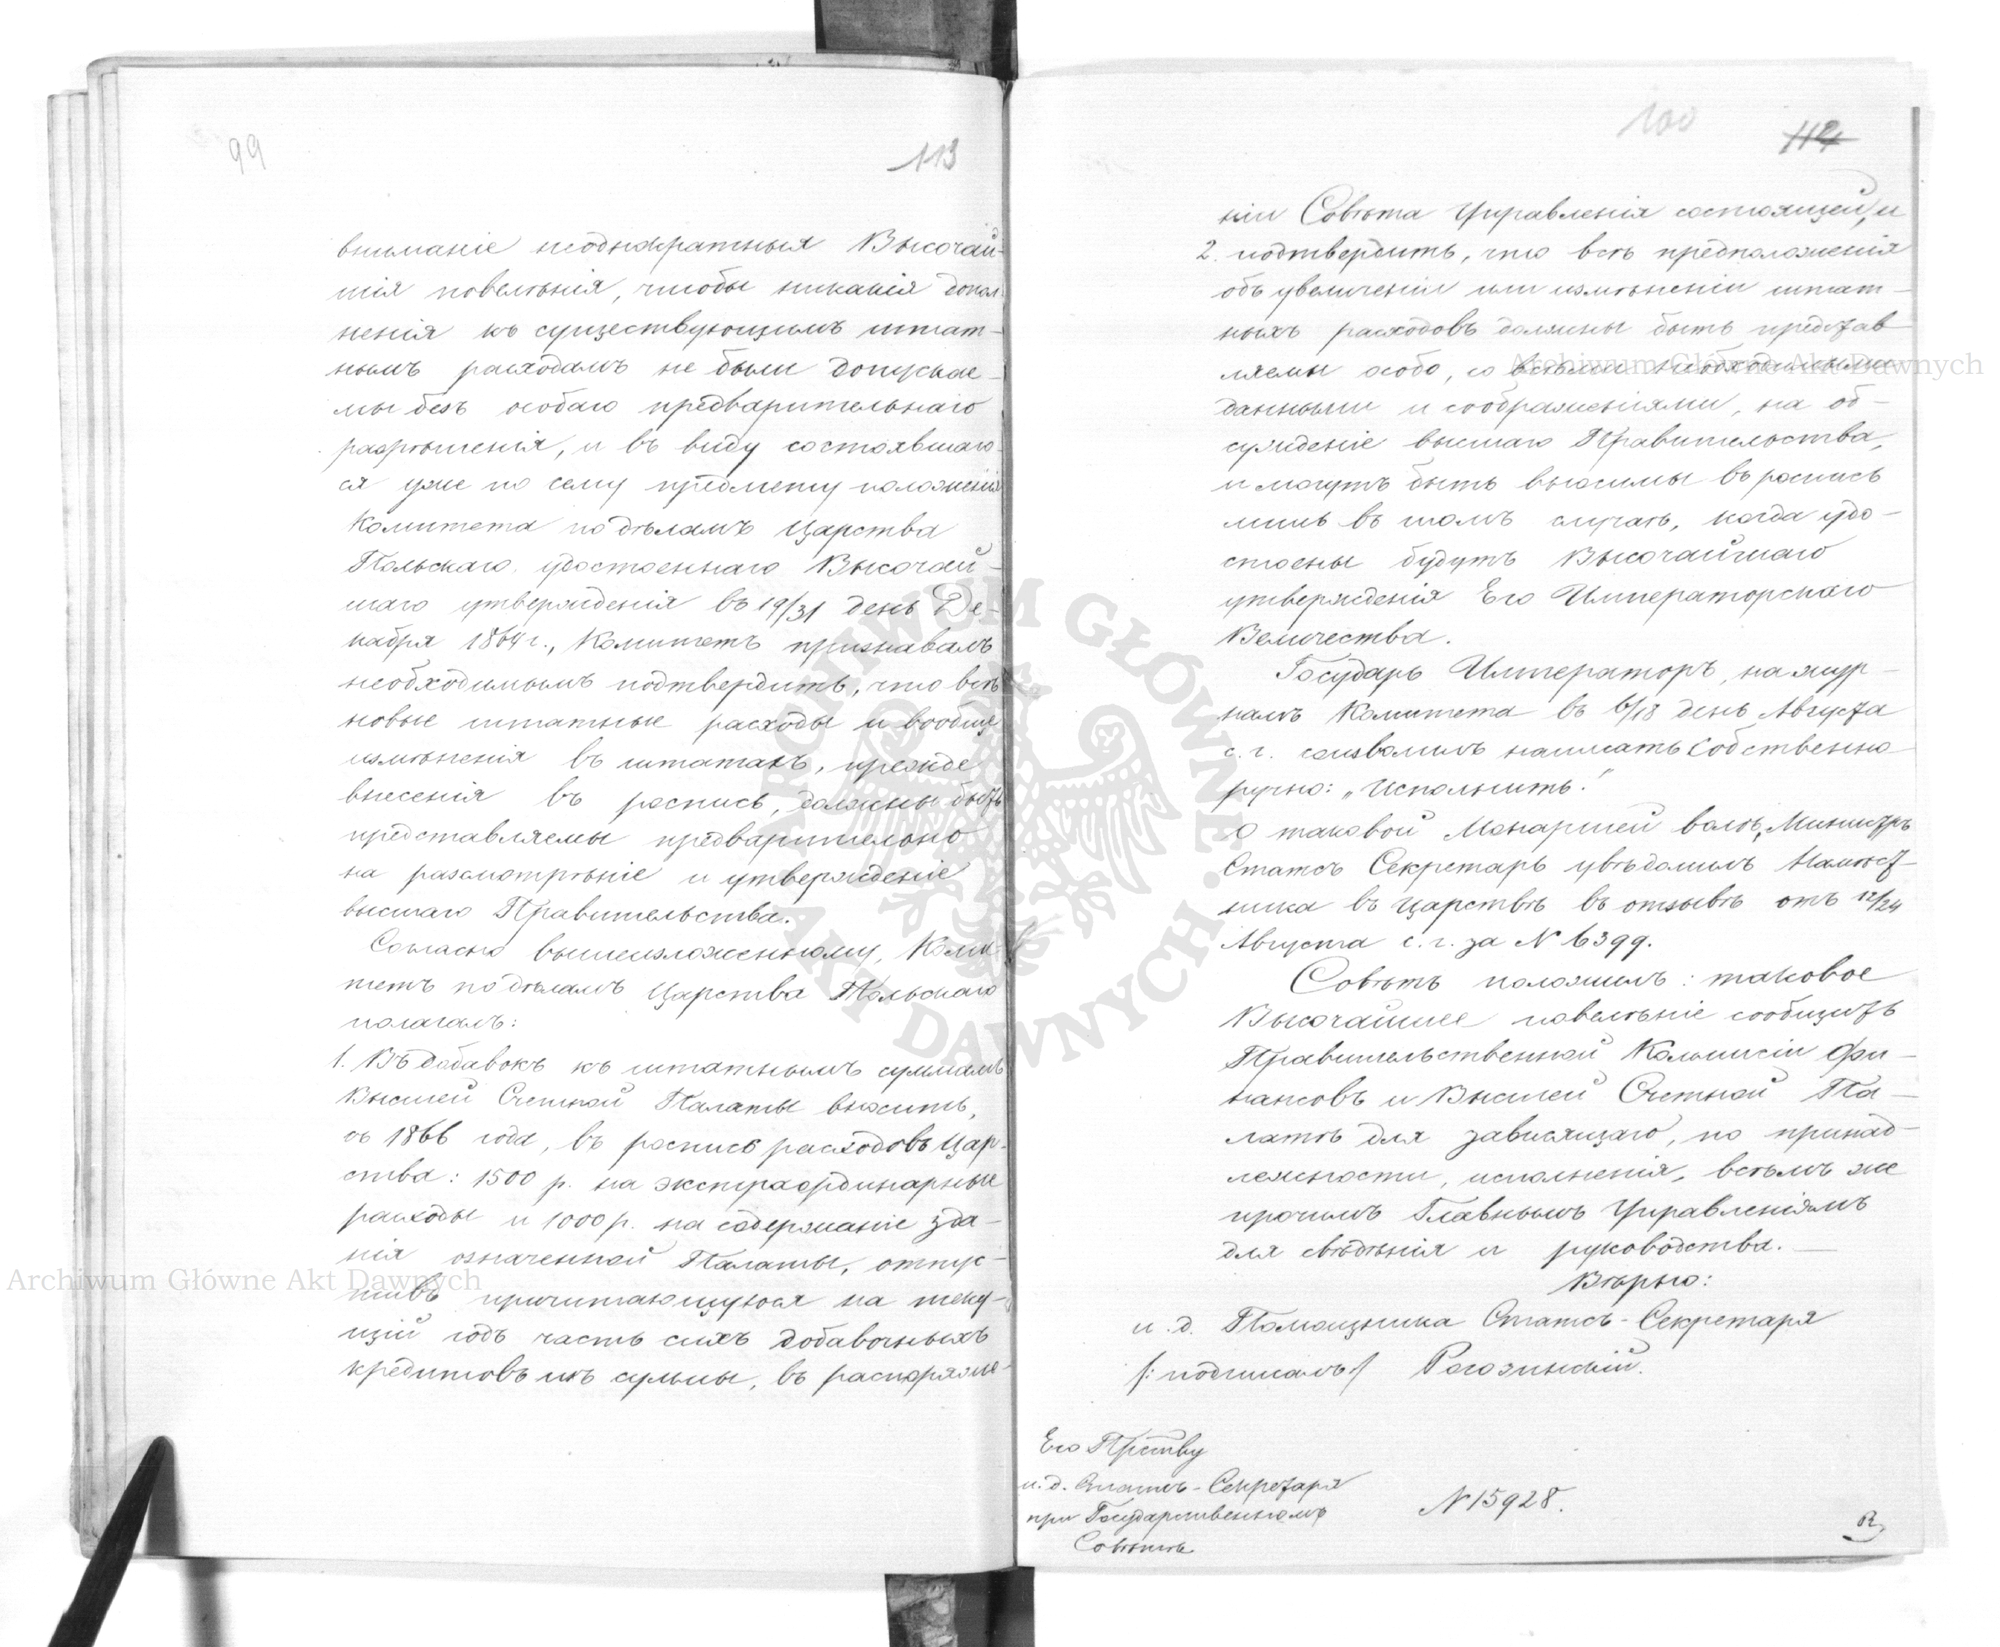 99
113
вниманіе неоднократныя Высочай-
шія повелѣнія, чтобы никакія допол-
ненія къ существующимъ штат-
нымъ расходамъ не были допускае-
мы безъ особаго предварительнаго
разрѣшенія, и въ виду состоявшаго-
ся уже по сему предмету положенія
Комитета по дѣламъ Царства
Польскаго удостоеннаго Высочай-
шаго утвержденія въ 19/31 день Де-
кабря 1864 г., Комитетъ признавалъ
необходимымъ подтвердить, что всѣ
новые штатные расходы и вообще
измѣненія въ штатахъ, прежде
внесенія въ роспись, должны быть
представляемы предварительно
на разсмотрѣніе и утвержденіе
высшаго Правительства.
Согласно вышеизложенному, Коми-
тетъ по дѣламъ Царства Польскаго
полагалъ:
1. Въ добавокъ къ штатнымъ суммамъ
Высшей Счетной Палаты вносить,
съ 1866 года, въ роспись расходовъ Цар-
ства: 1500 р. на экстраординарные
расходы и 1000 р. на содержаніе зда-
нія означенной Палаты, отпус-
тивъ причитающуюся на теку-
щій годъ часть сихъ добавочныхъ
кредитовъ изъ суммы, въ распоряже-
100
114
ніи Совѣта Управленія состоящей, и
2. подтвердить, что всѣ предположенія
объ увеличеніи или измѣненіи штат-
ныхъ расходовъ должны быть представ-
ляемы особо, со всѣми необходимыми
данными и соображеніями, на об-
сужденіе высшаго Правительства,
и могутъ быть вносимы въ роспись
лишь въ томъ случаѣ, когда удо-
стоены будутъ Высочайшаго
утвержденія Его Императорскаго
Величества.
Государь Императоръ, на жур-
налѣ Комитета въ 6/18 день Августа
с. г. соизволилъ написать Собственно-
ручно: „Исполнить."
О таковой Монаршей волѣ, Министръ
Статсъ Секретарь увѣдомилъ Намѣст-
ника въ Царствѣ въ отзывѣ отъ 12/24
Августа с. г. за N 6399.
Совѣтъ положилъ: таковое
Высочайшее повелѣніе сообщить
Правительственной Коммисіи Фи-
нансовъ и Высшей Счетной Па-
латѣ для зависящаго, по принад-
лежности, исполненія, всѣмъ же
прочимъ Главнымъ Управленіямъ
для свѣдѣнія и руководства.
Вѣрно:
и. д. Помощника Статсъ-Секретаря
/: подписалъ / Рогозинскій.
Его Прству
и. д. Статсъ-Секретаря
при Государственномъ
Совѣтѣ
N 15928.
Archiwum Główne Akt Dawnych
Archiwum Główne Akt Dawnych
ARCHIWUM GŁÓWNE AKT DAWNYCH